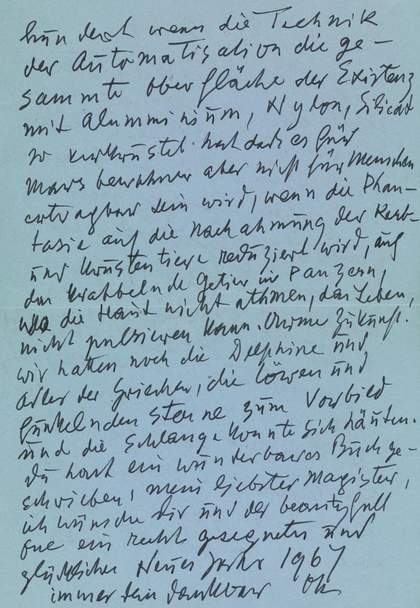 hundert wenn die Technik
der Automatisation die ge-
sammte Oberfläche der Existenz
mit Alumminium, Nylon, Silicat
so verkrustet hat daß es für
Marsbewohner aber nicht für Menschen
ertragbar sein wird, wenn die Phan-
tasie auf die Nachahmung der Kerb-
und Krustentiere reduziert wird, auf
das krabbelnde Getier in Panzern,
wo die Haut nicht athmen, das Leben,
nicht pulsieren kann. Zukunft!
wir hatten noch die Delphine und
Adler der Griechen, die Löwen und
funkelnden Sterne zum Vorbild
und die Schlange konnte sich häuten.
Du hast ein wunderbares Buch ge-
schrieben, mein liebster Magister,
ich wünsche Dir und der beautyfull
one ein recht gesegnetes und
glückliches Neues Jahr 1967
immer dein dankbar OK